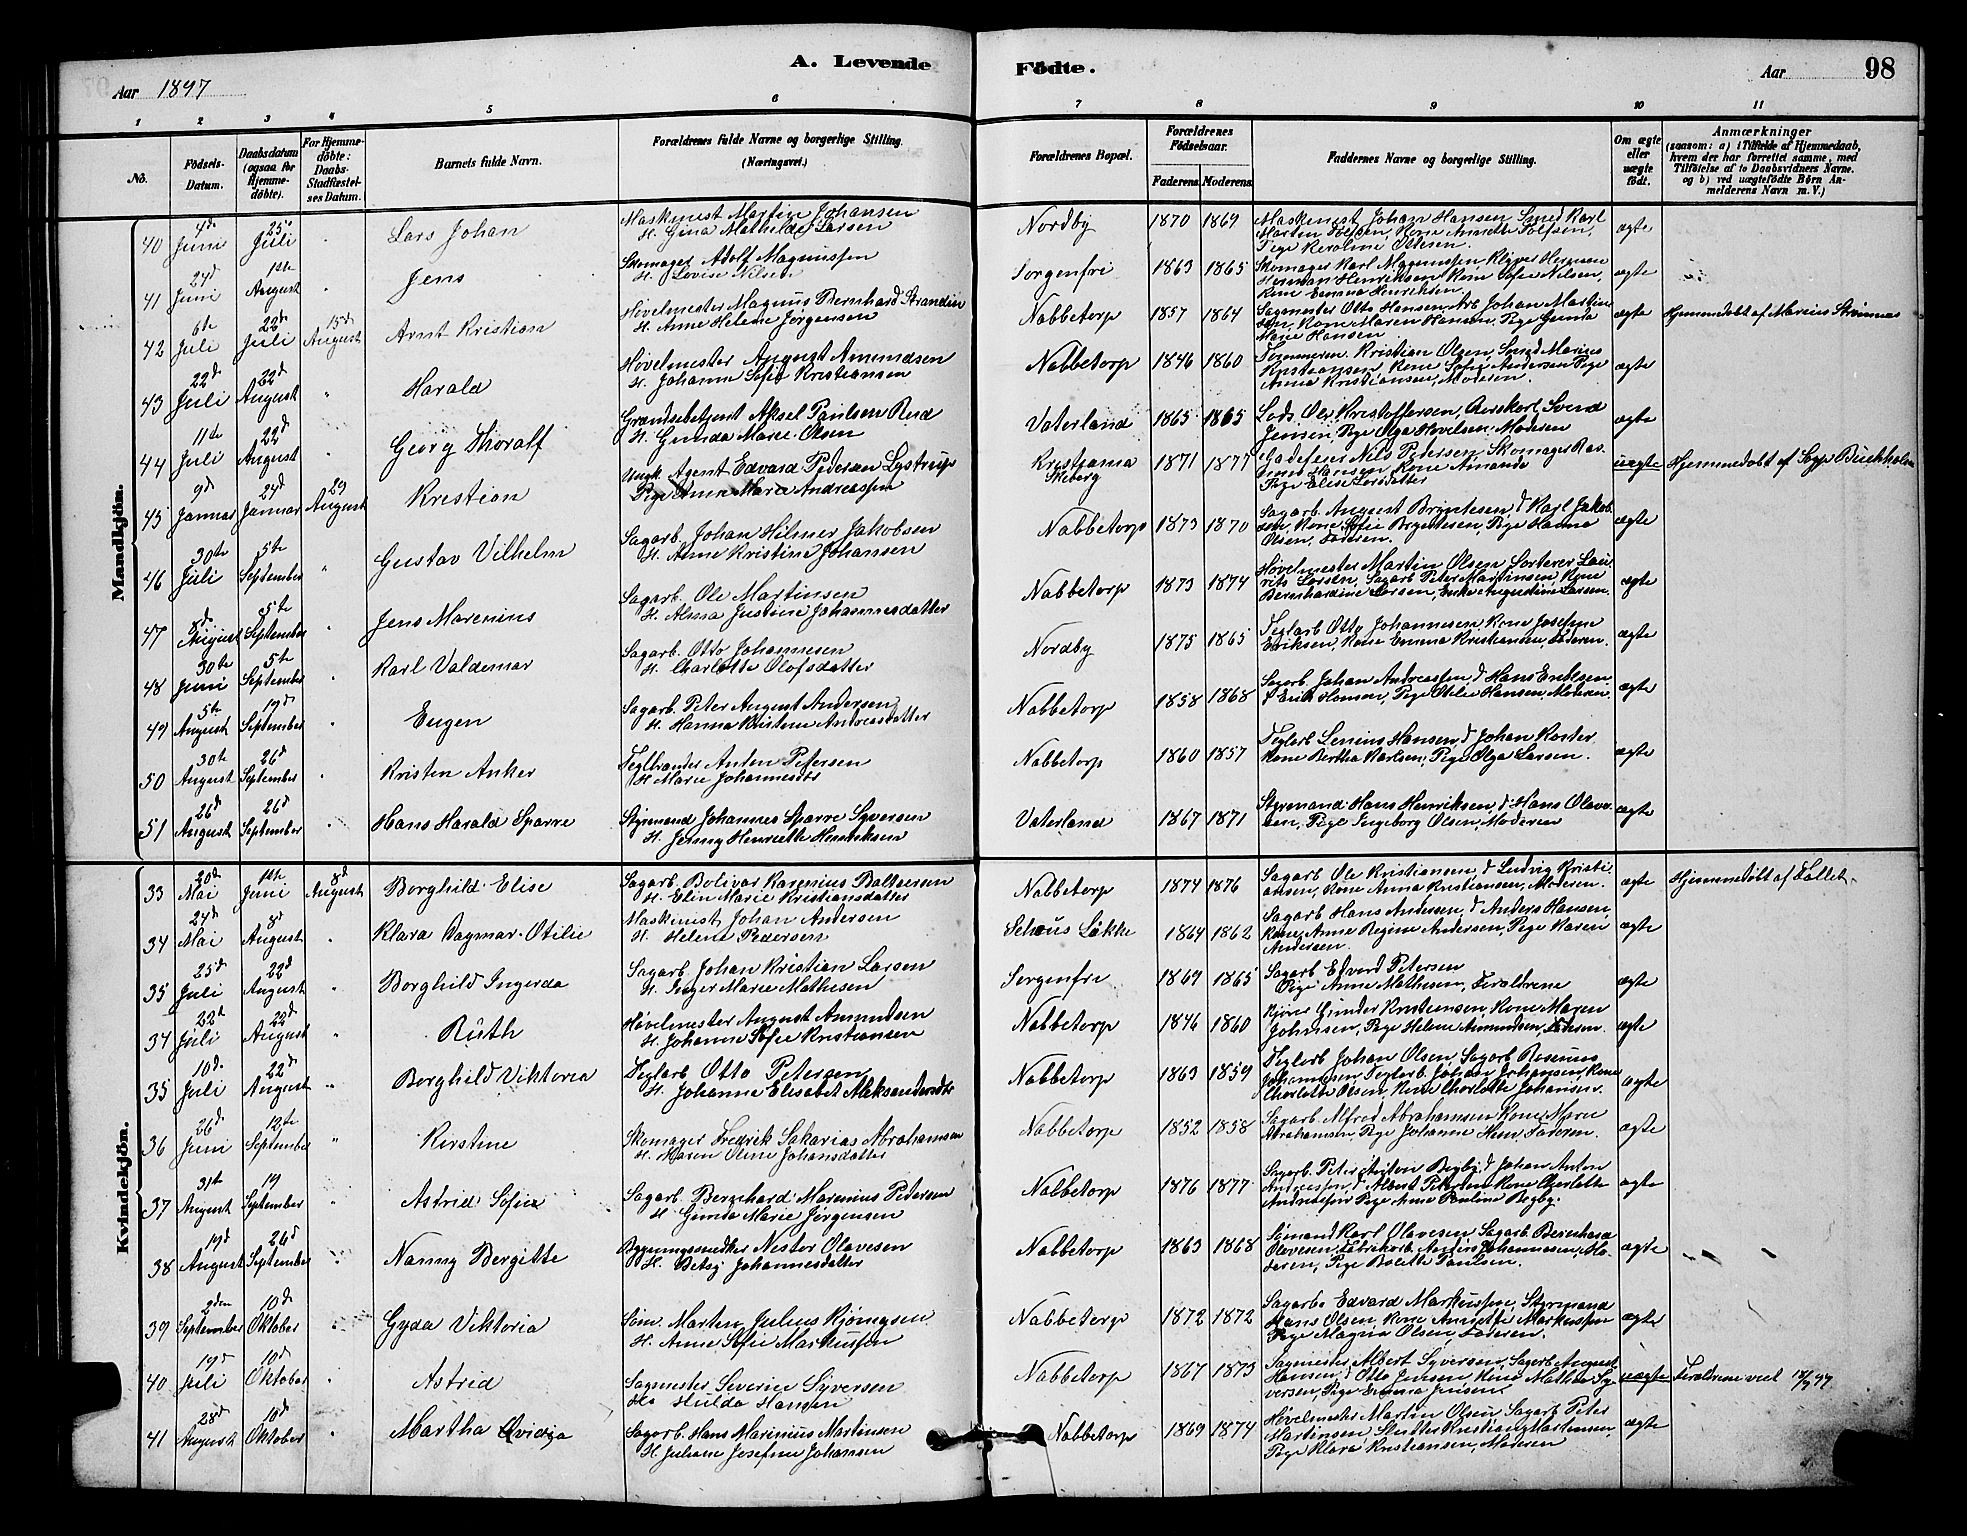 A. Levende Födte.
98
Aar 1897
Aar
1 2 3 4 5 6 7 8 9 10 11
No.
Födsels-Datum.
Daabsdatum (ogsaa for Hjemmedöbte).
For Hjemmedöbte: Daabs-Stadfæstelses Datum.
Barnets fulde Navn.
Forældrenes fulde Navne og borgerlige Stilling. (Næringsvei.)
Forældrenes Bopæl.
Forældrenes Födselsaar.
Faderens. Moderens.
Faddernes Navne og borgerlige Stilling.
Om ægte eller uægte födt.
Anmærkninger (saasom: a) i Tilfælde af Hjemmedaab, hvem der har forrettet samme, med Tilföielse af to Daabsvidners Navne. og b) ved uægtefödte Börn Anmelderens Navn m. V.)
Mandkjön.
40 4d Juni 25d Juli Lars Johan
Maskinist Martin Johansen
H. Gina Mathilde Larsen
Nordby 1870 1869
Maskinist Johan Hansen, Smed Karl
ægte
41 24d Juni 1ste August Jens
Skomager Adolf Magnussen
H. Lovise Nilsen
Sorgenfri 1863 1865
Skomager Karl Magnussen
ægte
42 6te Juli 22d Juli 15d August Arnt Kristian
Høvelmester Magnus Bernhard Strandin
H. Anne Helene Jørgensen
Nabbetorp 1857 1864
Sagmester Otto Hansen, Arb. Johan Martinsen, Kone Maren Hansen, Pige Gunda
Marie Hansen
ægte Hjemmedøbt af Marius Strømnes
43 22d Juli 22d August Harald
Høvelmester August Amundsen
H. Johanne Sofie Kristiansen
Nabbetorp 1846 1860
Tømmerm. Kristian Olsen, Smed Marius
Kristiansen, Kone Sofie Andersen Pige
Anna Kristiansen, Moderen.
ægte
44 11te Juli 22d August Georg Thoralf
Grændsebetjent Aksel Paulsen Rud
H. Gunda Marie Olsen
Vaterland 1865 1865
Lods Ole Kristoffersen, Svend
Jensen, Pige Olga Hovelsen, Moderen
ægte
45 9d Januar 24d Januar 29 August Kristian
Ungk. Agent Edvard Pedersen Lystrup
Pige Anna Marie Andreassen
Kristiania
Skeberg 1871 1877
Gadefeier Nils Pedersen, Skomager Rasmus Hansen, Kone Amanda
Pige Elise Larsdatter
uægte Hjemmedøbt af Sogp. Buchholm
46 30te Juli 5te September Gustav Vilhelm
Sagarb. Johan Hilmer Jakobsen
H. Anne Kristine Johansen
Nabbetorp 1873 1870
Sagarb. August Bryntesen, d Karl Jakobsen, Kone Sofie Bryntesen, Pige Hanna
Olsen, Faderen.
ægte
47 8d August 5te September Jens Marenius
Sagarb. Ole Martinsen
H. Alma Justine Johannesdatter
Nabbetorp 1873 1874
Høvelmester Martin Olsen Sorterer Laurits Larsen, Sagarb Peter Martinsen, Kone
Bernhardine Larsen, Enke Augustine Larsen.
ægte
48 30te Juni 5te September Karl Valdemar
Sagarb. Otto Johannesen
H. Charlotte Olofsdatter
Nordby 1875 1865
Teglarb Otto Johannesen Kone Josefine
Eriksen, Kone Emma Kristiansen, Faderen.
ægte
49 5te August 19d September Eugen
Sagarb. Peter August Andersen
H. Hanna Kristine Andreasdatter
Nabbetorp 1858 1868
Sagarb. Johan Andreassen, d Hans Emilsen
d Erik Hansen, Pige Otilie Hansen, Moderen.
ægte
50 30te August 26d September Kristen Anker
Teglbrænder Anton Petersen
H. Marie Johannesdtr
Nabbetorp 1860 1857
Teglarb Lenius Hansen, d Johan Koster
Kone Bertha Karlsen, Pige Olga Larsen.
ægte
51 26d August 26d September Hans Harald Sparre
Styrmand Johannes Sparre Syversen
H. Jenny Henriette Henriksen
Vaterland 1867 1871
Styrmand Hans Henriksen, d Hans Olaversen, Pige Ingeborg Olsen, Moderen
ægte
Kvindekjön.
33 20d Mai 1ste Juni 8d August Borghild Elise
Sagarb. Bolivar Karenius Baltsersen
H. Elin Marie Kristiansdatter
Nabbetorp 1874 1876
Sagarb Ole Kristiansen, d Ludvig Kristiansen, Kone Anna Kristiansen, Moderen.
ægte Hjemmedøbt af
34 24d Mai 8d August Klara Dagmar Otilie
Maskinist Johan Andersen
H. Helene Pedersen
Schous Løkke 1864 1862
Sagarb Hans Andersen, d Anders Hansen,
Kone Anne Regine Andersen, Pige Karen
Andersen.
ægte
35 25d Juli 22d August Borghild Ingerda
Sagarb. Johan Kristian Larsen
H. Inger Marie Mathisen
Sorgenfri 1869 1865
Sagarb Edvard Petersen
Pige Anne Mathisen, Forældrene
ægte
34 22d Juli 22d August Ruth
Høvelmester August Amundsen
H. Johanne Sofie Kristiansen
Nabbetorp 1846 1860
Kjører Gunder Kristiansen, Kone Maren
Johansen, Pige Helene Amundsen, Faderen.
ægte
35 10d Juli 22d August Borghild Viktoria
Teglarb Otto Petersen
H. Johanne Elisabet Aleksandersdtr
Nabbetorp 1863 1859
Teglarb Johan Olsen, Sagarb Rasmus
Johannesen, Teglarb. Johan Johansen, Kone
Charlotte Olsen, Kone Charlotte Johansen.
ægte
36 26d Juni 12te September Kirstine
Skomager Fredrik Sakarias Abrahamsen
H. Maren Oline Johansdatter
Nabbetorp 1852 1858
Sagarb. Alfred Abrahamsen Kone Marie
Abrahamsen, Pige Johanne Hem Faderen.
ægte
37 31te August 19 September Astrid Sofie
Sagarb. Bernhard Marenius Petersen
H Gunda Marie Jørgensen
Nabbetorp 1876 1877
Sagarb. Peter Anton Begby, d Johan Anton
Andreassen, d Albert Petersen Kone Charlotte
Andreassen Pige Anne Pauline Begby.
ægte
38 19d August 26d September Nanny Bergitte
Bygningssnedker Nestor Olavesen
H. Betsy Johannesdatter
Nabbetorp 1863 1868
Sømand Karl Olavesen Sagarb. Bernhard
Olavesen, Fabrikarb. Anders Johannesen, Moderen, Pige Bolette Paulsen.
ægte
39 2den September 10d Oktober Gyda Viktoria
Søm. Marten Julius Kjømysen
H. Anne Sofie Markussen
Nabbetorp 1872 1872
Sagarb. Edvard Markussen, Styrmand
Hans Olsen, Kone Annette Markussen
Pige Magna Olsen, Faderen.
ægte
40 19d Juli 10d Oktober Astrid
Sagmester Severin Syversen
H. Hulda Hansen
Nabbetorp 1867 1873
Sagmester Albert Syversen, Sagarb August
Hansen, d Otto Jensen, Kone Mathilde Syversen, Pige Emma Jensen.
uægte Forældrene viet
41 28d August 10d Oktober Martha Qvidia
Sagarb. Hans Marinius Martinsen
H. Juliane Josefine Johansen
Nabbetorp 1869 1874
Høvelmester Martin Olsen Sagarb Peter
Martinsen, Kristian Martinsen,
Pige Klara Kristiansen, Moderen
ægte